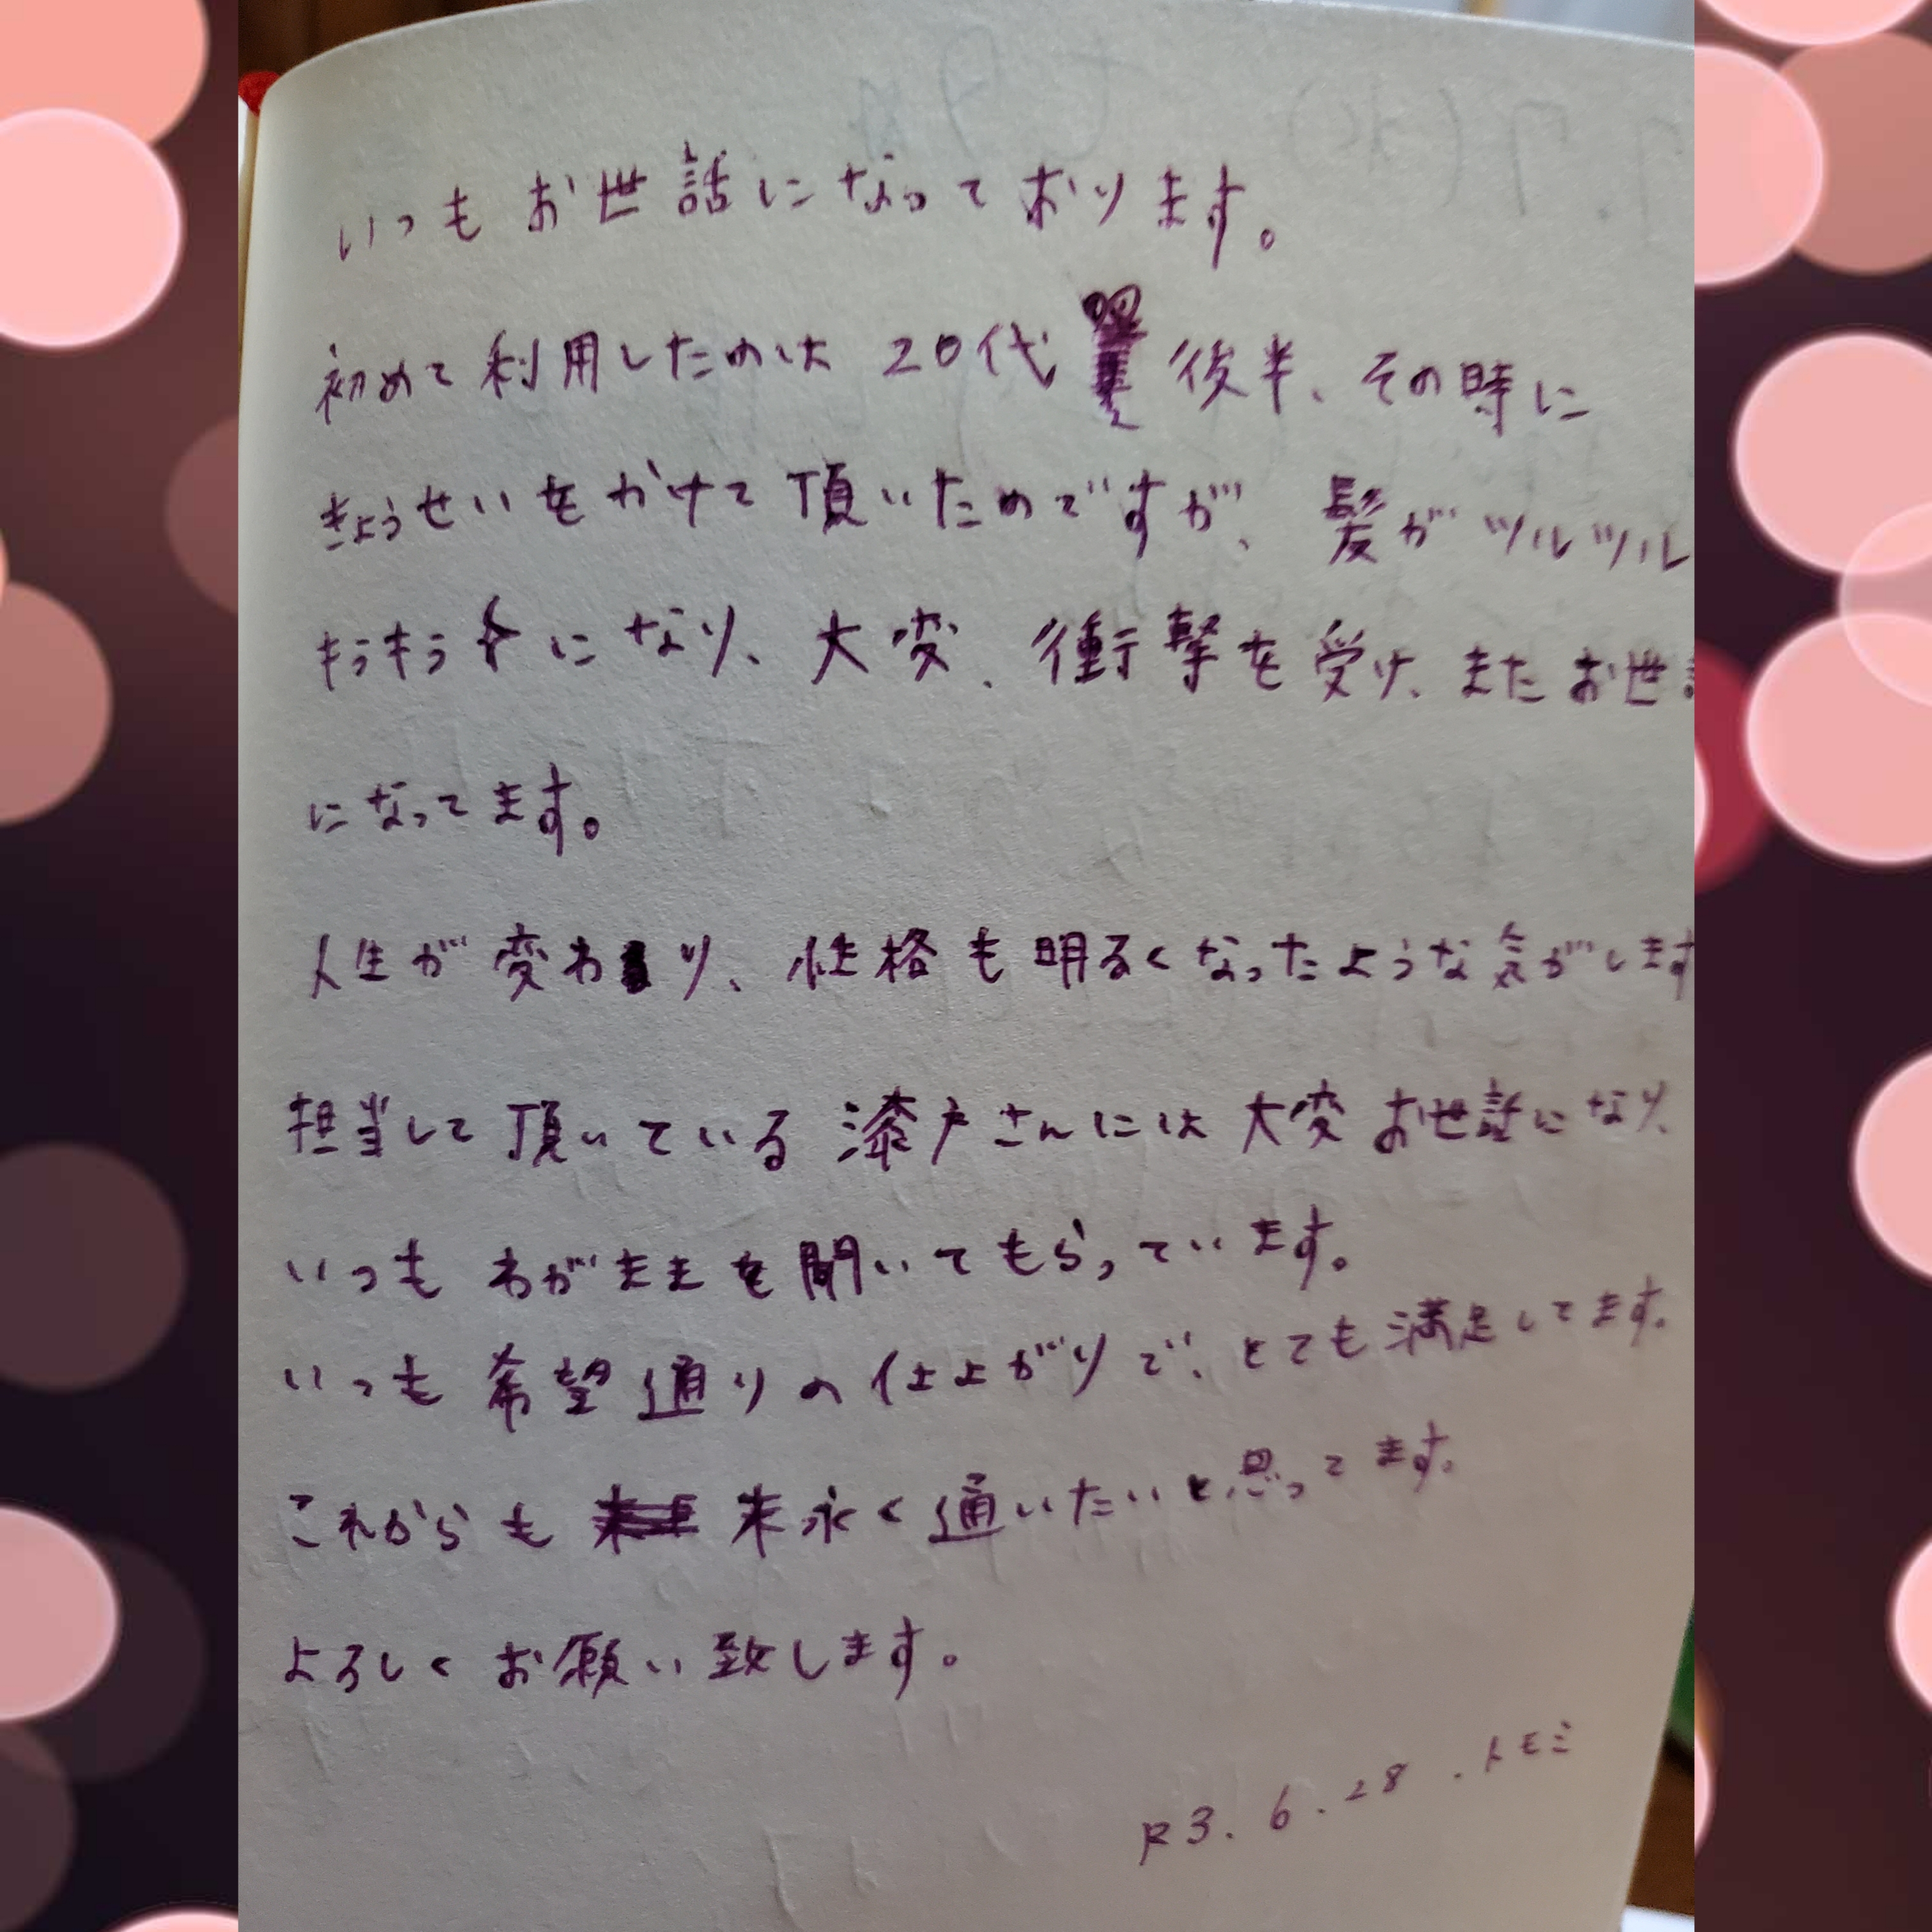 いつもお世話になっております。
初めて利用したのは20代 後半、その時に
きょうせいをかけて頂いたのですが、髪がツルツル
キラキラになり、大変、衝撃を受け、またお世
になってます。
人生が変わり、性格も明るくなったような気がします
担当して頂いている漆戸さんには大変お世話になり、
いつもわがままを聞いてもらっています。
いつも希望通りの仕上がりで、とても満足してます。
これからも 末永く通いたいと思ってます。
よろしくお願い致します。
R3.6.28.トモミ